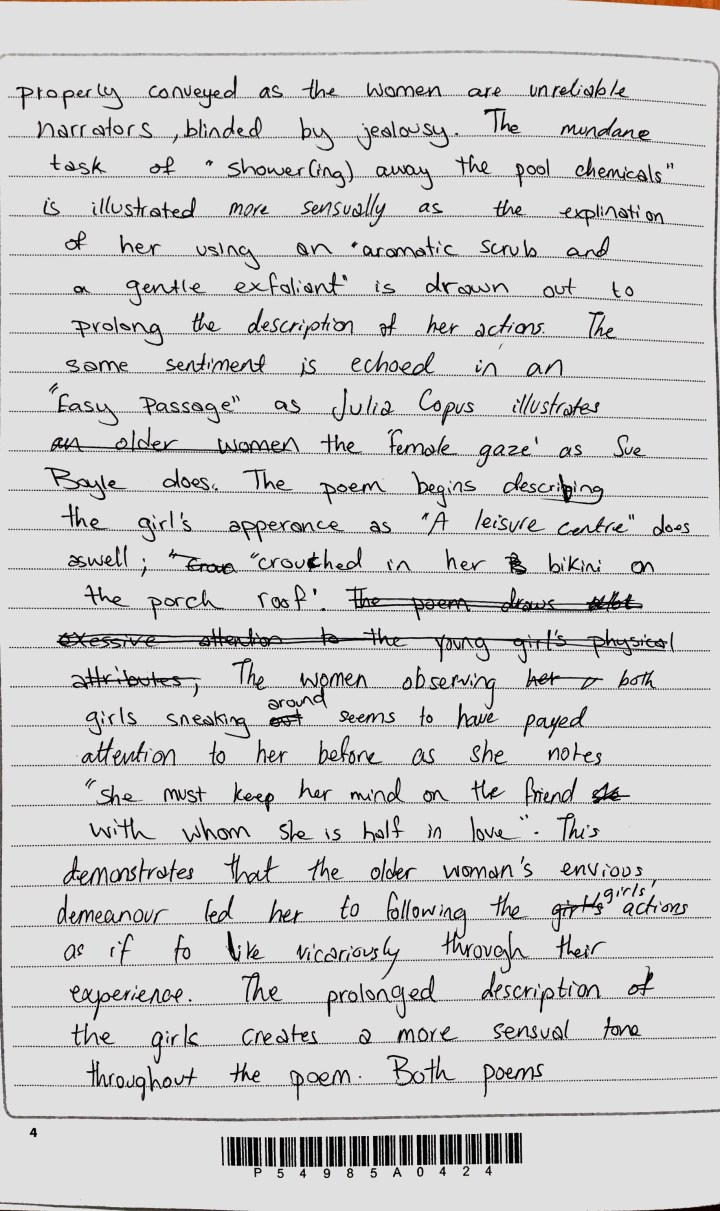 properly conveyed as the women are unreliable
narrators, blinded by jealousy. The mundane
task of "shower(ing) away the pool chemicals"
is illustrated more sensually as the explination
of her using an "aromatic scrub and
a gentle exfoliant" is drawn out to
prolong the description of her actions. The
same sentiment is echoed in an
"Easy Passage" as Julia Copus illustrates
an older women the 'female gaze' as Sue
Boyle does. The poem begins describing
the girl's apperance as "A leisure centre" does
aswell; "Crou "crouched in her B bikini on
the porch roof'. The poem draws allot
exessive attention to the young girl's physical
attributes, The women observing her both
around
girls sneaking out seems to have payed
attention to her before as she notes
"she must keep her mind on the friend she
with whom she is half in love". This
demonstrates that the older woman's envious,
girls'
demeanour led her to following the girl's actions
as if to like vicariously through their
experience. The prolonged description of
the girls creates a more sensual tone
throughout the poem. Both poems
4
P54985A0424